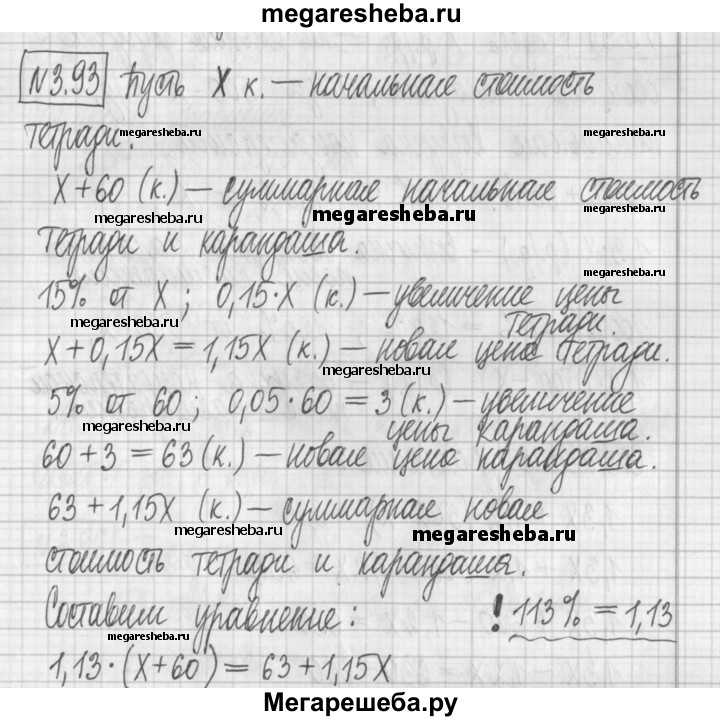 megaresheba.ru
№3.93 Пусть X к. – начальная стоимость
тетради.
megaresheba.ru megaresheba.ru
X+60 (к.) – суммарная начальная стоимость
megaresheba.ru megaresheba.ru
тетради и карандаша.
15% от X; 0,15·X (к.) – увеличение цены
тетради.
megaresheba.ru
X+0,15X = 1,15X (к.) – новая цена тетради.
megaresheba.ru
5% от 60; 0,05·60 = 3 (к.) – увеличение
цены карандаша.
megaresheba.ru
60 + 3 = 63 (к.) – новая цена карандаша.
63 + 1,15X (к.) – суммарная новая
megaresheba.ru megaresheba.ru
стоимость тетради и карандаша.
Составим уравнение: ! 113% = 1,13
megaresheba.ru megaresheba.ru
1,13·(X+60) = 63+1,15X
Мегарешеба.ру